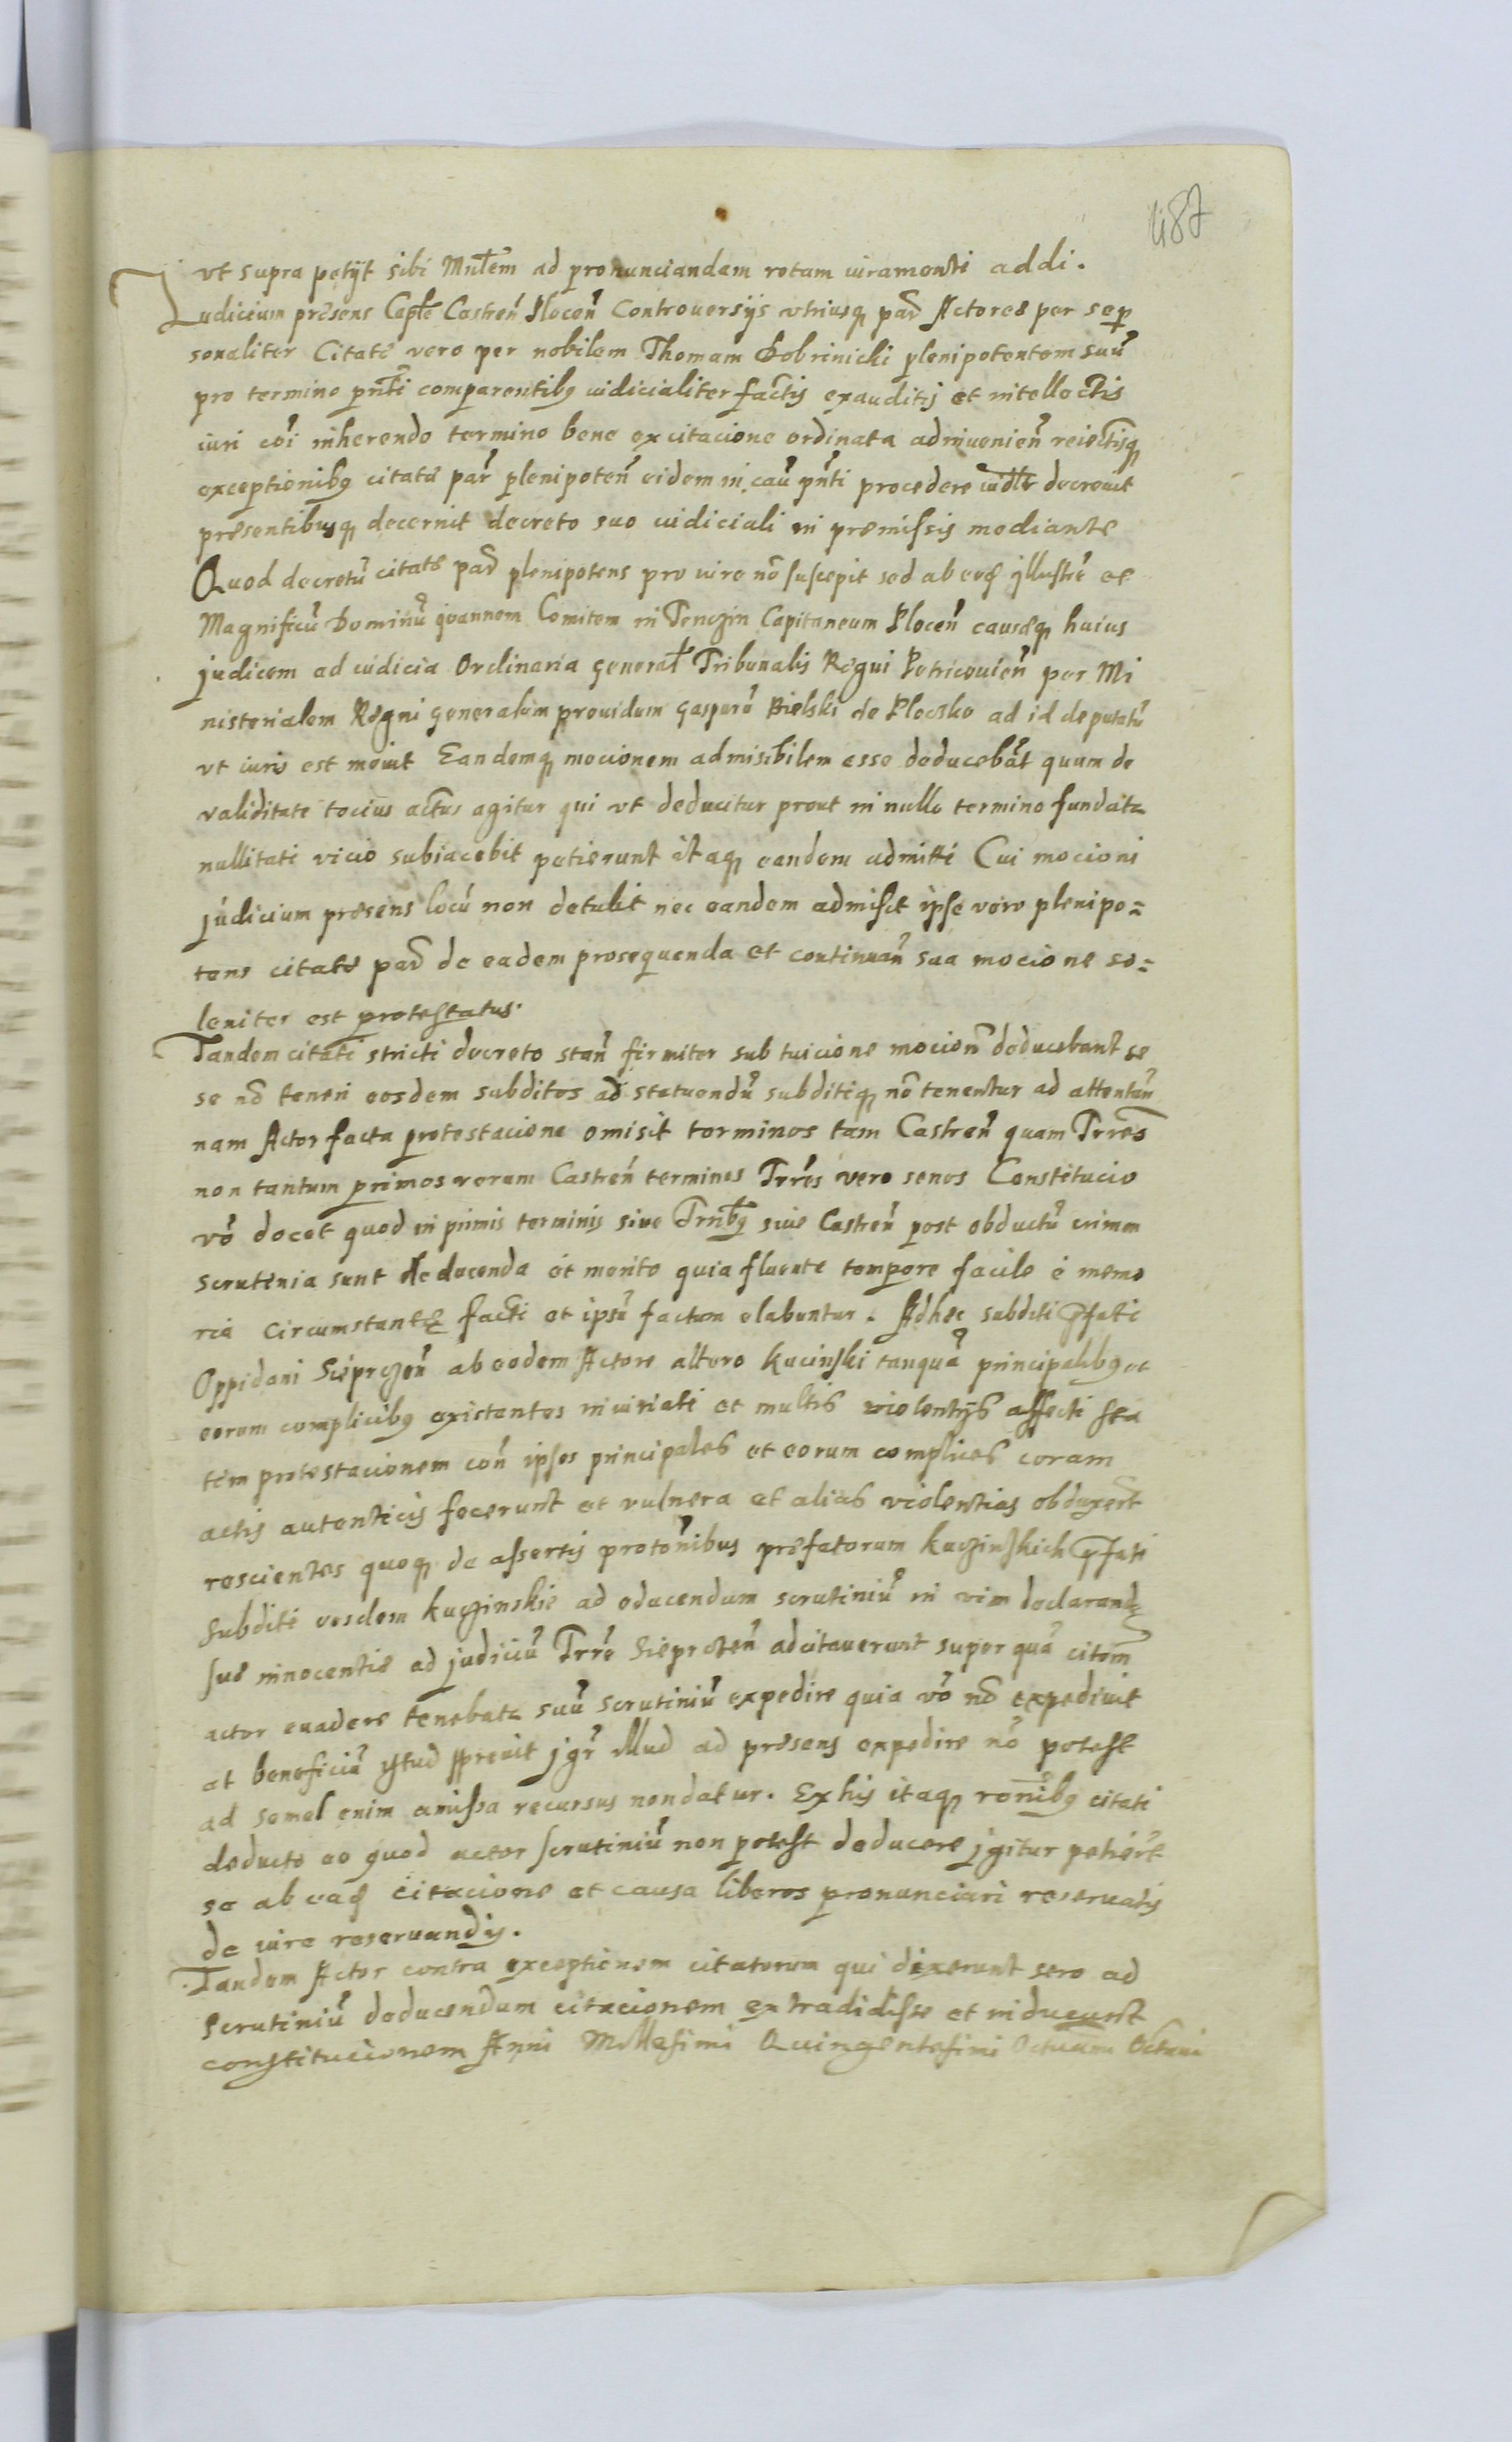 487
ut supra petyt sibi Mnlem ad pronunciandam rotam iuramenti addi.
Iudicium præsens Caple Castren Plocen Controuersijs vtriusq par Actores per se per
sonaliter Citate vero per nobilem Thomam Dobrinicki plenipotentem suu
pro termino pnti comparentibq iudicialiter factis exauditis et intellectis
iuri coi inherendo termino bene ex citacione ordinata adinuenien reiectisq
exceptionibq citate par plenipoten eidem in cau pnti procedere decreuit
præsentibusq decernit decreto suo iudiciali in præmissis mediante
Quod decretu citate par plenipotens pro iure no suscepit sed ab eod Illustre et
Magnificu Dominu Joannem Comitem in Tenczin Capitaneum Plocen causæq huius
judicem ad iudicia Ordinaria general Tribunalis Regni Petricouien per Mi
nisterialem Regni generalem prouidum Gasparu Bielski de Ploczko ad id deputatu
vt iuris est mouit Eandemq mocionem admisibilem esse deducebat quum de
validitate tocius actus agitur qui vt deducitur prout in nullo termino fundatr
nullitati vicio subiacebit petierunt itaq eandem admitti Cui mocioni
judicium præsens locu non detulit nec eandem admisit ipse vero plenipo=
tens citate par de eadem prosequenda et continuan sua mocione so=
leniter est protestatus.
Tandem citati stricti decreto stan firmiter sub tuicione mocion deducebant se
se no teneri eosdem subditos ad statuendu subditiq no tenentur ad attentan
nam Actor facta protestacione omisit terminos tam Castren quam Trres
non tantum primos verum Castren terminos Trres vero senos Constitucio
vo docet quod in primis terminis siue Trribq siue Castren post obductu crimen
scrutinia sunt deducenda et merito quia fluente tempore facile è memo
ria circumstantiæ facti et ipsu factum elabuntur. Adhec subditi pfati
Oppidani Sieprczen ab eodem Actore altero Kucinski tanqua principalibq et
eorum complicibq existentes iniuriati et multis violentijs affecti sta
tim protestacionem con ipsos principales et eorum complices coram
actis autenticis fecerunt et vulnera et alias violentias obduxert
rescientes quoq de assertis protonibus præfatorum Kuczinskich pfati
subditi eosdem Kuczinskie ad educendum scrutiniu in vim declarandæ
suæ innocentiæ ad judiciu Trre Sieprcten adcitauerunt super qua citom
actor euadere tenebatr suu scrutiniu expedire quia vo no expediuit
at beneficiu istud spreuit jgr illud ad præsens expedire no potest
ad semel enim amissa recursus non datur. Ex his itaq ronibq citati
deducto eo quod actor scrutiniu non potest deducere jgitur petiert
se ab ead citacione et causa liberos pronunciari reseruatis
de iure reseruandis.
Tandem Actor contra exceptionem citatorum qui dixerunt sero ad
scrutiniu deducendum citacionem extradidisse et inducunt
constitucionem Anni Millesimi Quingentesimi Octuam Octaui